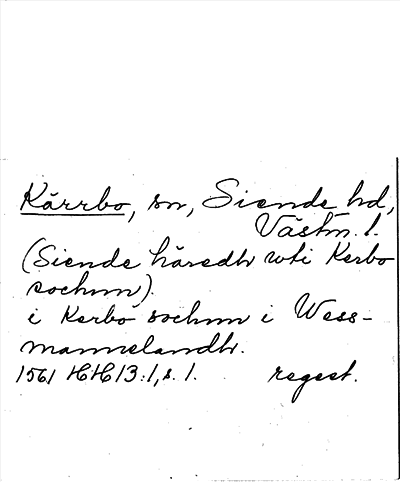 Kärrbo, sn, Siende hd,
Västm. l.
(Siende häredh uti Kerbo
sochnn).
i Kerbo sochnn i Wess-
mannelandh.
1561 HH 13:1, s. 1. regest.